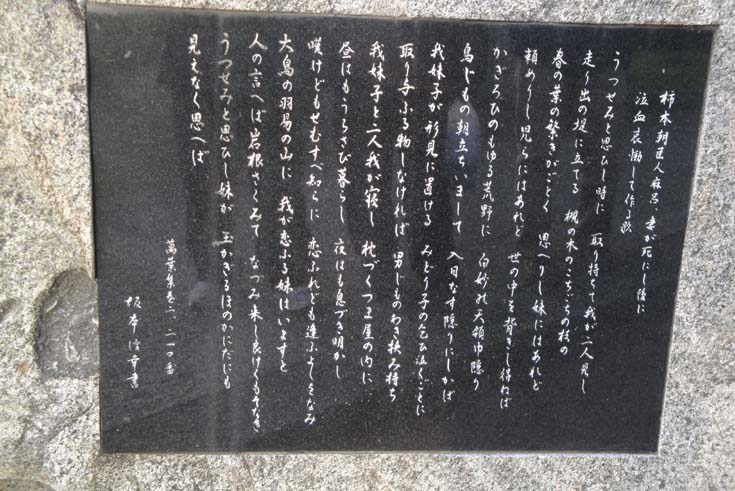 柿本朝臣人麻呂、妻が死にし後に
泣血哀慟して作る歌
うつせみと思ひし時に 取り持ちて我が二人見し
走り出の堤に立てる 槻の木のこちごちの枝の
春の葉の繁きがごとく 思へりし妹にはあれど
頼めりし児らにはあれど 世の中を背きし得ねば
かぎろひのもゆる荒野に 白妙の天領巾隠り
鳥じもの朝立ちいまして 入日なす隠りにしかば
我妹子が形見に置ける みどり子の乞ひ泣くごとに
取り与ふる物しなければ 男じものわき挟み持ち
我妹子と二人我が寝し 枕づくつま屋の内に
昼はもうらさび暮らし 夜はも息づき明かし
嘆けどもせむすべ知らに 恋ふれども逢ふよしをなみ
大鳥の羽易の山に 我が恋ふる妹はいますと
人の言へば岩根さくみて なづみ来し良けくもそなき
うつせみと思ひし妹が 玉かぎるほのかにだにも
見えなく思へば
萬葉集巻二、二一〇番
坂本信幸書